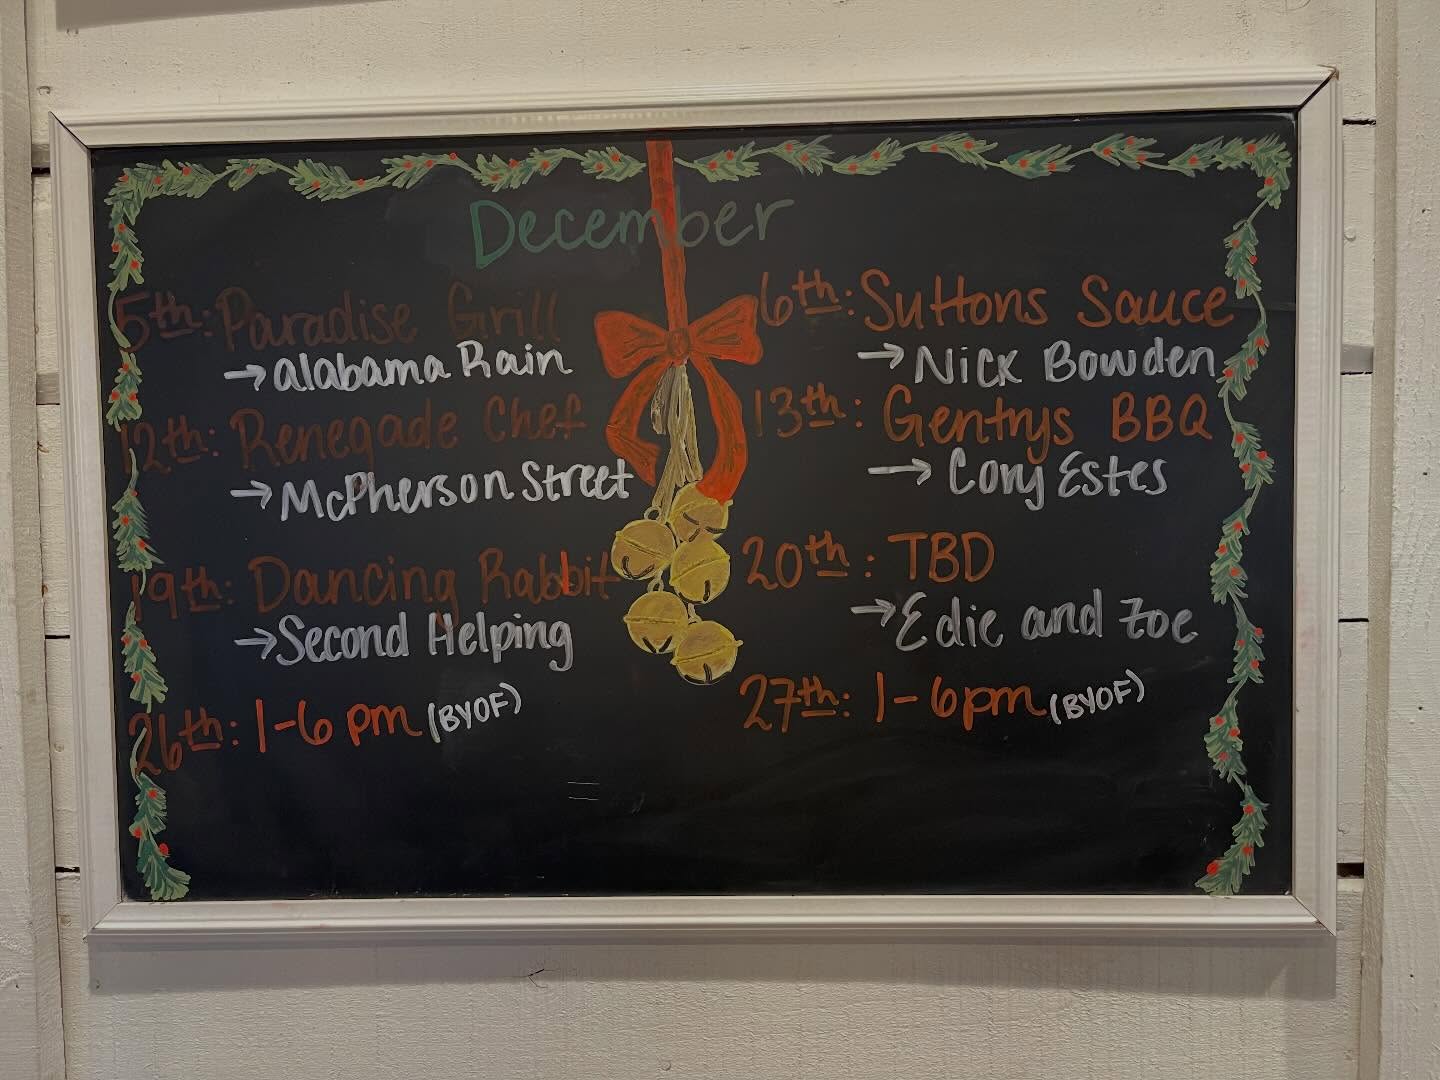 December
5th: Paradise Grill
→ Alabama Rain
12th: Renegade Chef
→ McPherson Street
19th: Dancing Rabbit
→ Second Helping
26th: 1-6 pm (BYOF)
6th: Suttons Sauce
→ Nick Bowden
13th: Gentrys BBQ
→ Cory Estes
20th: TBD
→ Edie and Zoe
27th: 1-6pm (BYOF)